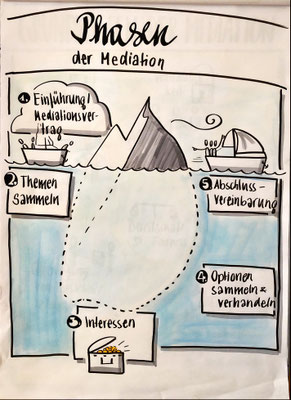 Phasen
der Mediation
1. Einführung/
Mediationsver-
trag
2. Themen
sammeln
3. Interessen
4. Optionen
sammeln &
verhandeln
5. Abschluss-
vereinbarung